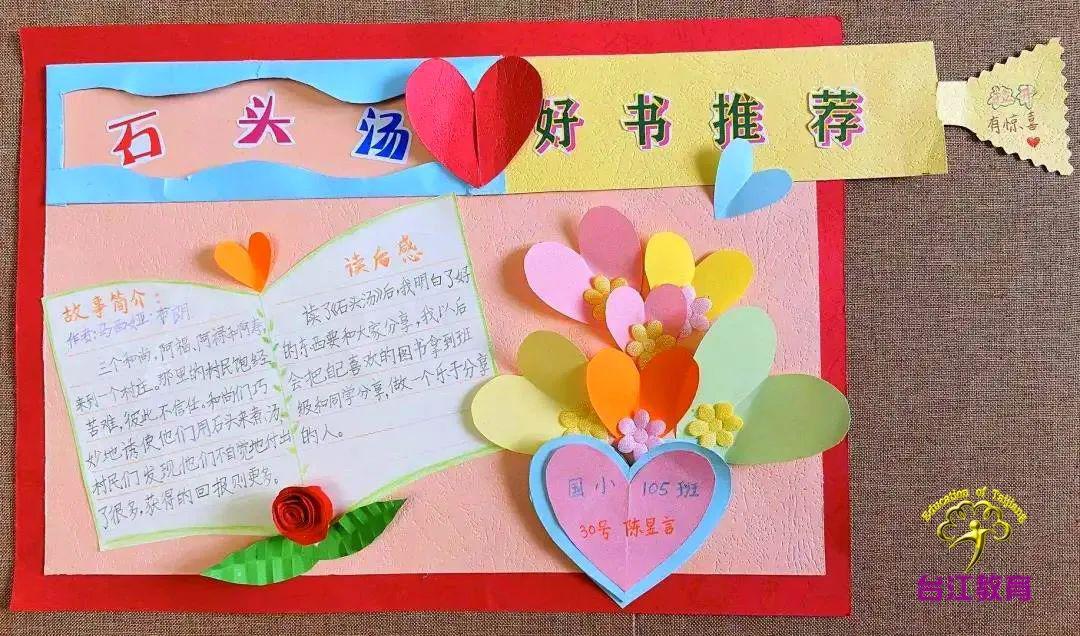 石头汤
好书推荐
拉开
有惊喜
故事简介：
作者：马西娅·布朗
三个和尚，阿福、阿禄和阿寿
来到一个村庄。那里的村民饱经
苦难，彼此不信任。和尚们巧
妙地诱使他们用石头来煮汤，
村民们发现他们不自觉地付出
了很多，获得的回报则更多。
读后感
读了《石头汤》后，我明白了好
的东西要和大家分享，我以后
会把自己喜欢的图书拿到班
级和同学分享，做一个乐于分享
的人。
国小 105班
30号 陈昱言
Education of Taijiang
台江教育